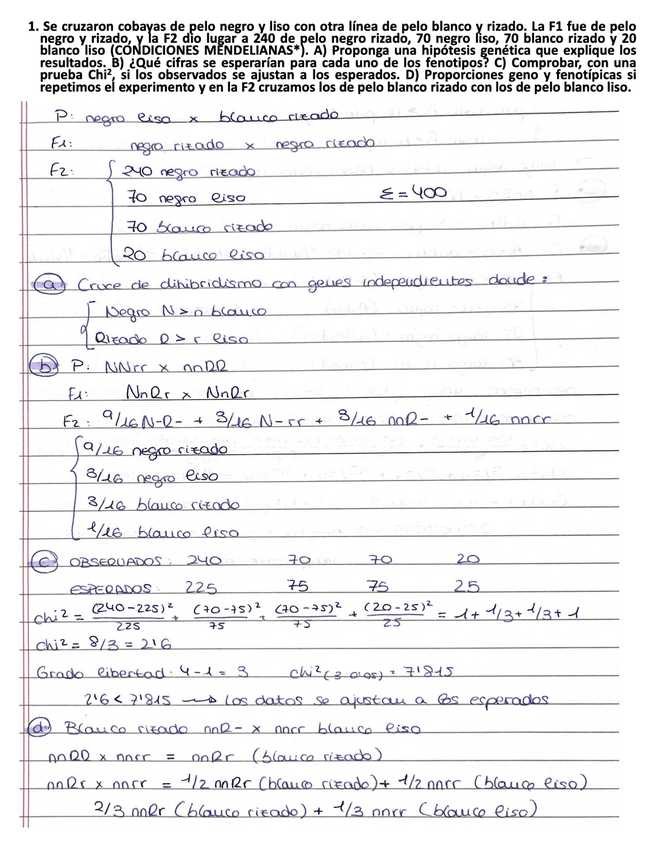 1. Se cruzaron cobayas de pelo negro y liso con otra línea de pelo blanco y rizado. La F1 fue de pelo
negro y rizado, y la F2 dio lugar a 240 de pelo negro rizado, 70 negro liso, 70 blanco rizado y 20
blanco liso (CONDICIONES MENDELIANAS*). A) Proponga una hipótesis genética que explique los
resultados. B) ¿Qué cifras se esperarían para cada uno de los fenotipos? C) Comprobar, con una
prueba Chi², si los observados se ajustan a los esperados. D) Proporciones geno y fenotípicas si
repetimos el experimento y en la F2 cruzamos los de pelo blanco rizado con los de pelo blanco liso.
P: negro liso x blanco rizado
F1: negro rizado x negro rizado
F2: 240 negro rizado
70 negro liso Σ=400
70 blanco rizado
20 blanco liso
a) Cruce de dihibridismo con genes independientes donde:
Negro N>n blanco
Rizado R>r liso
b) P: NNrr x nnRR
F1: NnRr x NnRr
F2: 9/16 N-R- + 3/16 N-rr + 3/16 nnR- + 1/16 nnrr
9/16 negro rizado
3/16 negro liso
3/16 blanco rizado
1/16 blanco liso
c) OBSERVADOS: 240 70 70 20
ESPERADOS: 225 75 75 25
chi²= (240-225)²/225 + (70-75)²/75 + (70-75)²/75 + (20-25)²/25 = 1+1/3+1/3+1
chi²= 8/3 = 2'6
Grado libertad: 4-1=3 chi²(3,0'05)= 7'815
2'6 < 7'815 → los datos se ajustan a los esperados
d) Blanco rizado nnR- x nnrr blanco liso
nnRR x nnrr = nnRr (blanco rizado)
nnRr x nnrr = 1/2 nnRr (blanco rizado) + 1/2 nnrr (blanco liso)
2/3 nnRr (blanco rizado) + 1/3 nnrr (blanco liso)